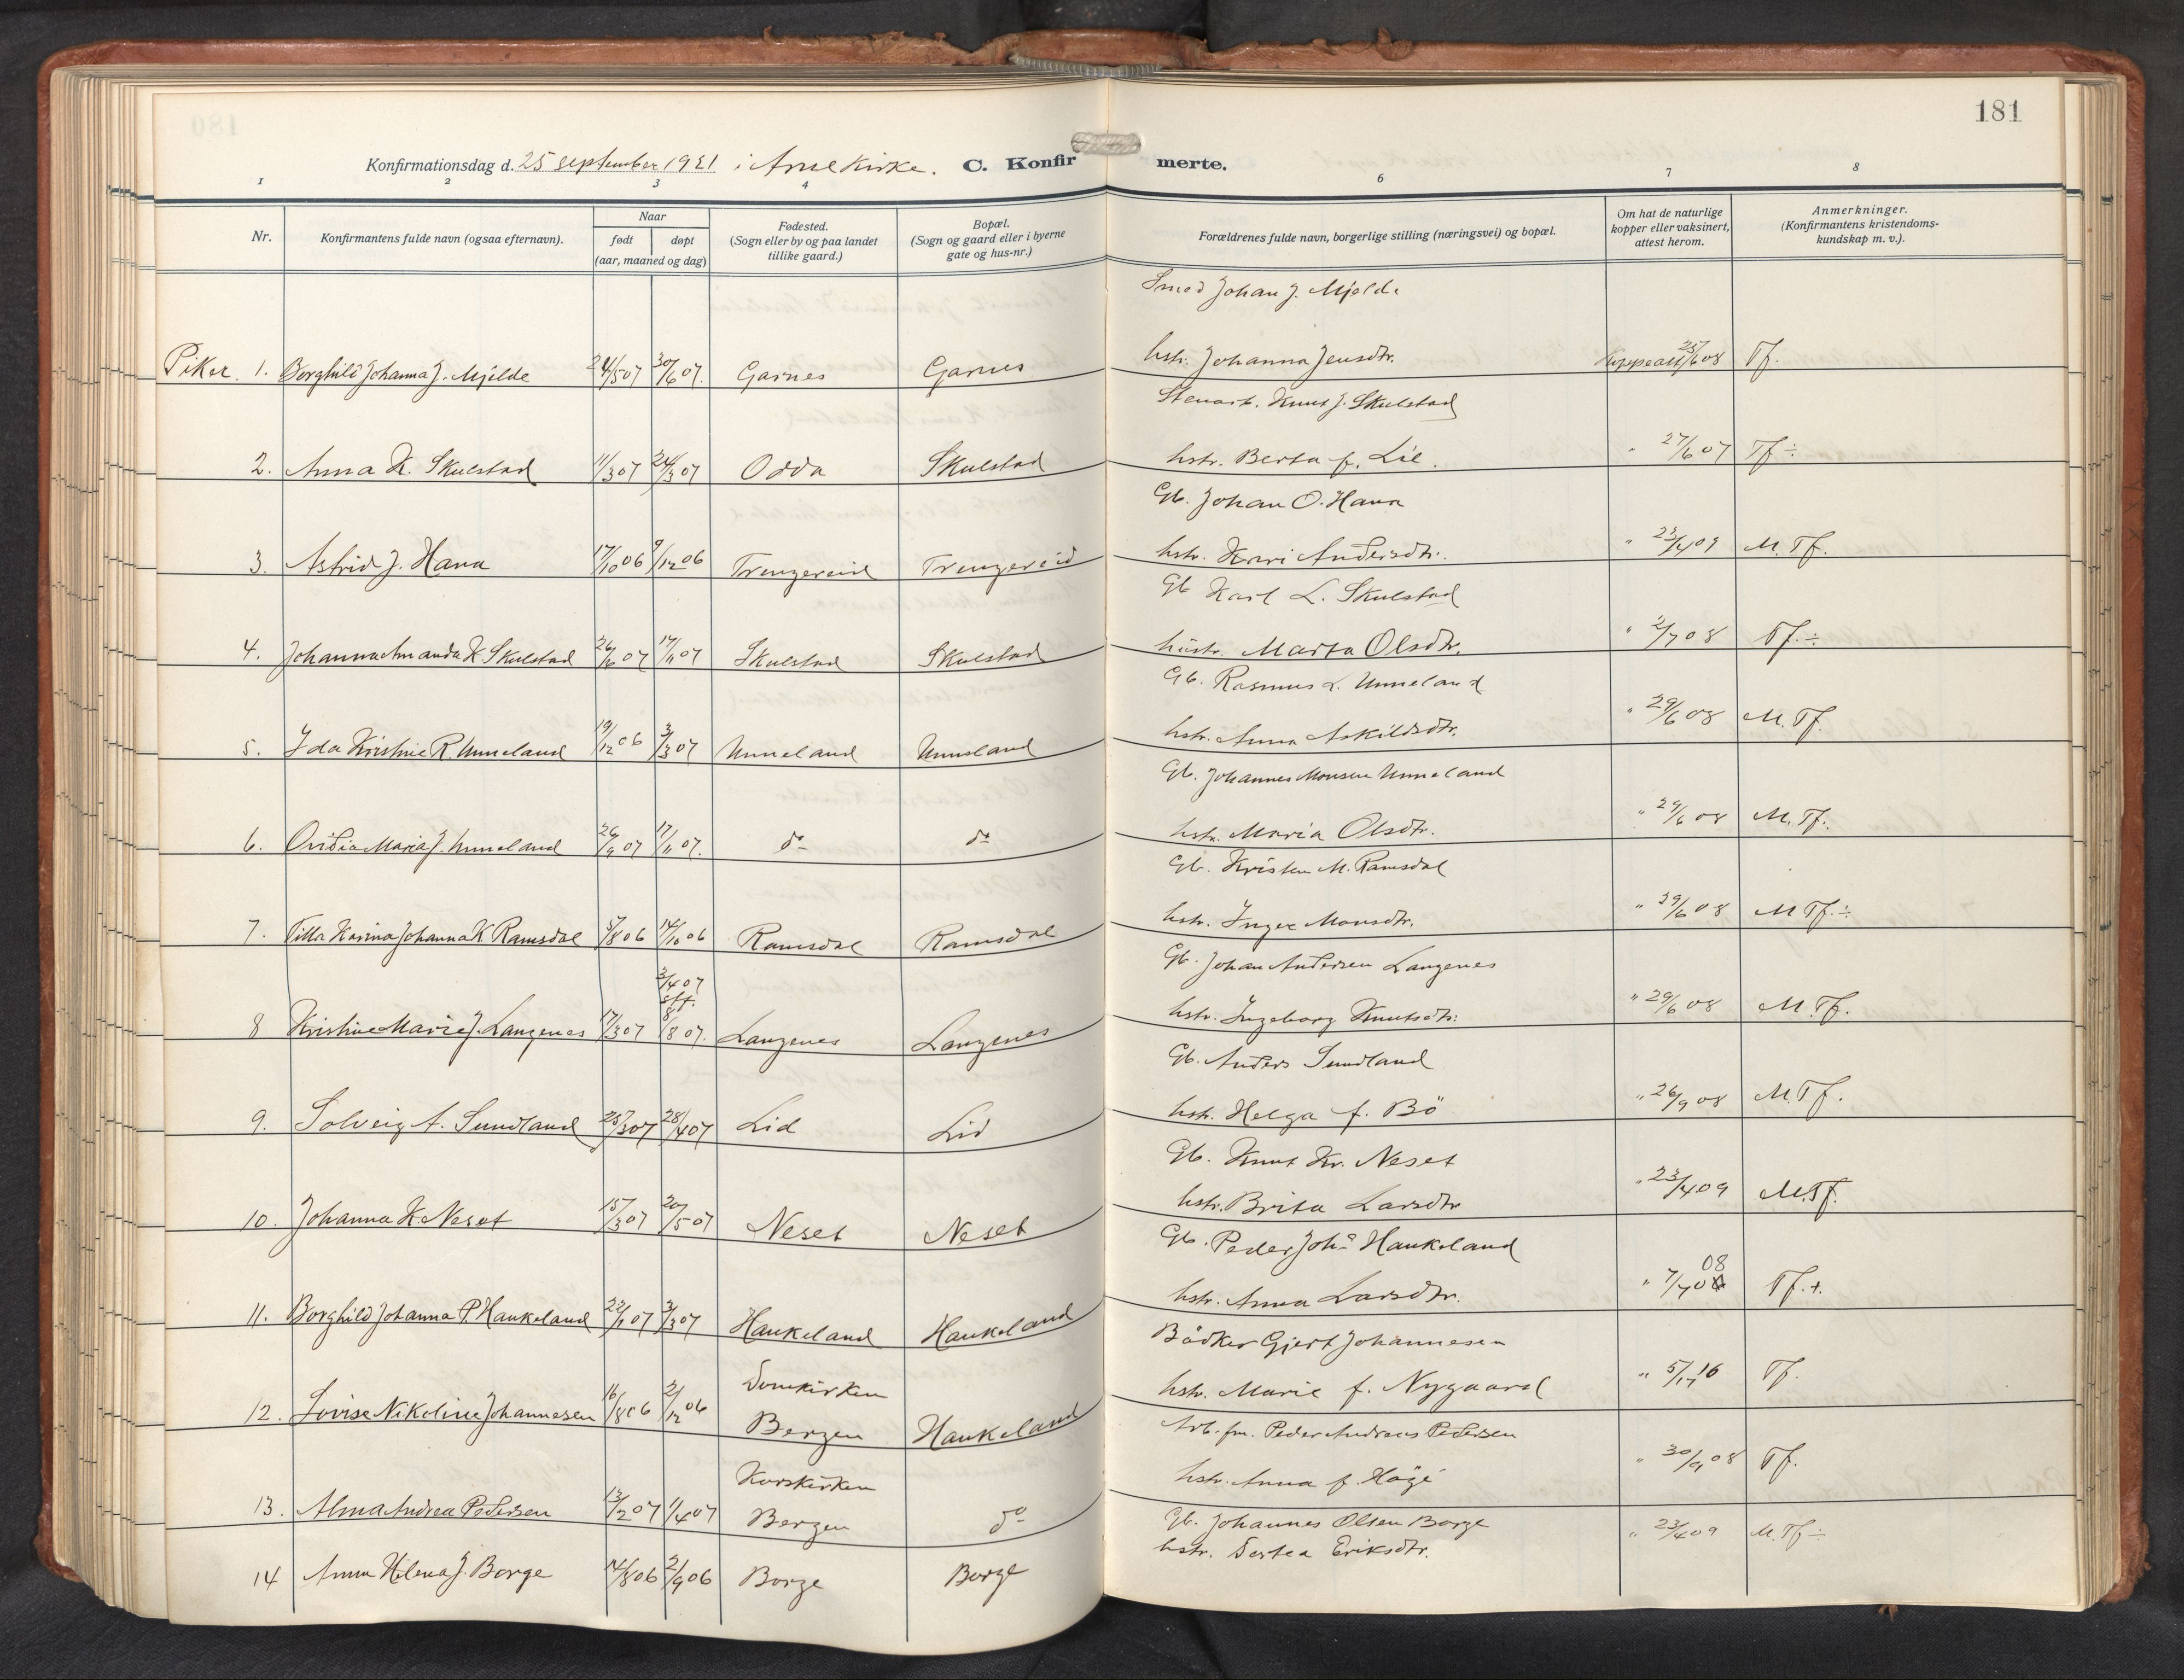 181
Konfirmationsdag d. 25 september 1921 i Arne Kirke. C. Konfirmerte.
1 2 3 4 6 7 8
Nr.
Konfirmantens fulde navn (ogsaa efternavn).
Naar
født døpt
(aar, maaned og dag)
Fødested.
(Sogn eller by og paa landet
tillike gaard.)
Bopæl.
(Sogn og gaard eller i byerne
gate og hus-nr.)
Forældrenes fulde navn, borgerlige stilling (næringsvei) og bopæl.
Om hat de naturlige
kopper eller vaksinert,
attest herom.
Anmerkninger.
(Konfirmantens kristendoms-
kundskap m. v.).
Smed Johan J. Mjelde
Piker. 1. Borghild Johanna J. Mjelde 24/5 07 30/6 07. Garnes Garnes hstr. Johanna Jensdtr. Koppeatt 25/6 08 Tf.
Knut J. Skulstad
2. Anna K. Skulstad 11/3 07 24/3 07 Odda Skulstad hstr. Berta f. Lie. " 27/6 07 Tf ÷
Gb. Johan O. Hana
3. Astrid J. Hana 17/10 06 9/12 06 Trengereid Trengereid hstr. Kari Andersdtr. " 23/4 09 M. Tf.
Gb Karl L. Skulstad
4. Johanna Amanda K. Skulstad 26/10 07 17/11 07 Skulstad Skulstad hustr. Marta Olsdtr. " 2/7 08 Tf. ÷
Gb. Rasmus L. Unneland
5. Ida Kristine R. Unneland 19/12 06 3/3 07 Unneland Unneland hstr. Anna Askildsdtr. " 29/6 08 M. Tf.
Gb. Johannes Monsen Unneland
6. Ovidia Maria J. Unneland 26/9 07 17/11 07. do do hstr. Maria Olsdtr. " 29/6 08 M. Tf.
Gb. Kristen M. Ramsdal
7. Tilla Karina Johanna K Ramsdal 5/8 06 14/10 06 Ramsdal Ramsdal hstr. Inger Monsdtr. " 29/6 08 M Tf. ÷
Gb. Johan Andersen Langenes
3/4 07
stf.
8 Kristine Marie J. Langenes 17/3 07 8/8 07. Langenes Langenes hstr. Ingeborg Knutsdtr. " 29/6 08 M. Tf.
Gb. Anders Sundland
9. Solveig A. Sundland 25/3 07 28/4 07 Lid Lid hstr. Helga f. Bö " 26/9 08 M. Tf.
Gb. Knut Kr. Neset
10. Johanna K. Neset 15/3 07 20/5 07 Neset Neset hstr. Brita Larsdtr " 23/4 09 M. Tf.
Gb. Peder Johs Haukeland
08
11. Borghild Johanna P. Haukeland 22/1 07 3/3 07 Haukeland Haukeland hstr. Anna Larsdtr. " 7/7 Tf. +.
Domkirken Bödker Gjert Johannesen
12. Lovise Nikoline Johannesen 16/8 06 2/12 06 Bergen Haukeland hstr. Marie f. Nygaard " 16 Tf.
Korskirken Arb. fm. Peder Andreas Pedersen
13. Alma Andrea Pedersen 13/2 07 1/4 07 Bergen do hstr. Anna f. " 30/9 08 Tf.
Gb. Johannes Olsen Borge
14 Anna Helena J. Borge 14/8 06 2/9 06 Borge Borge hstr. Eriksdtr. " 23/4 09 M. Tf ÷